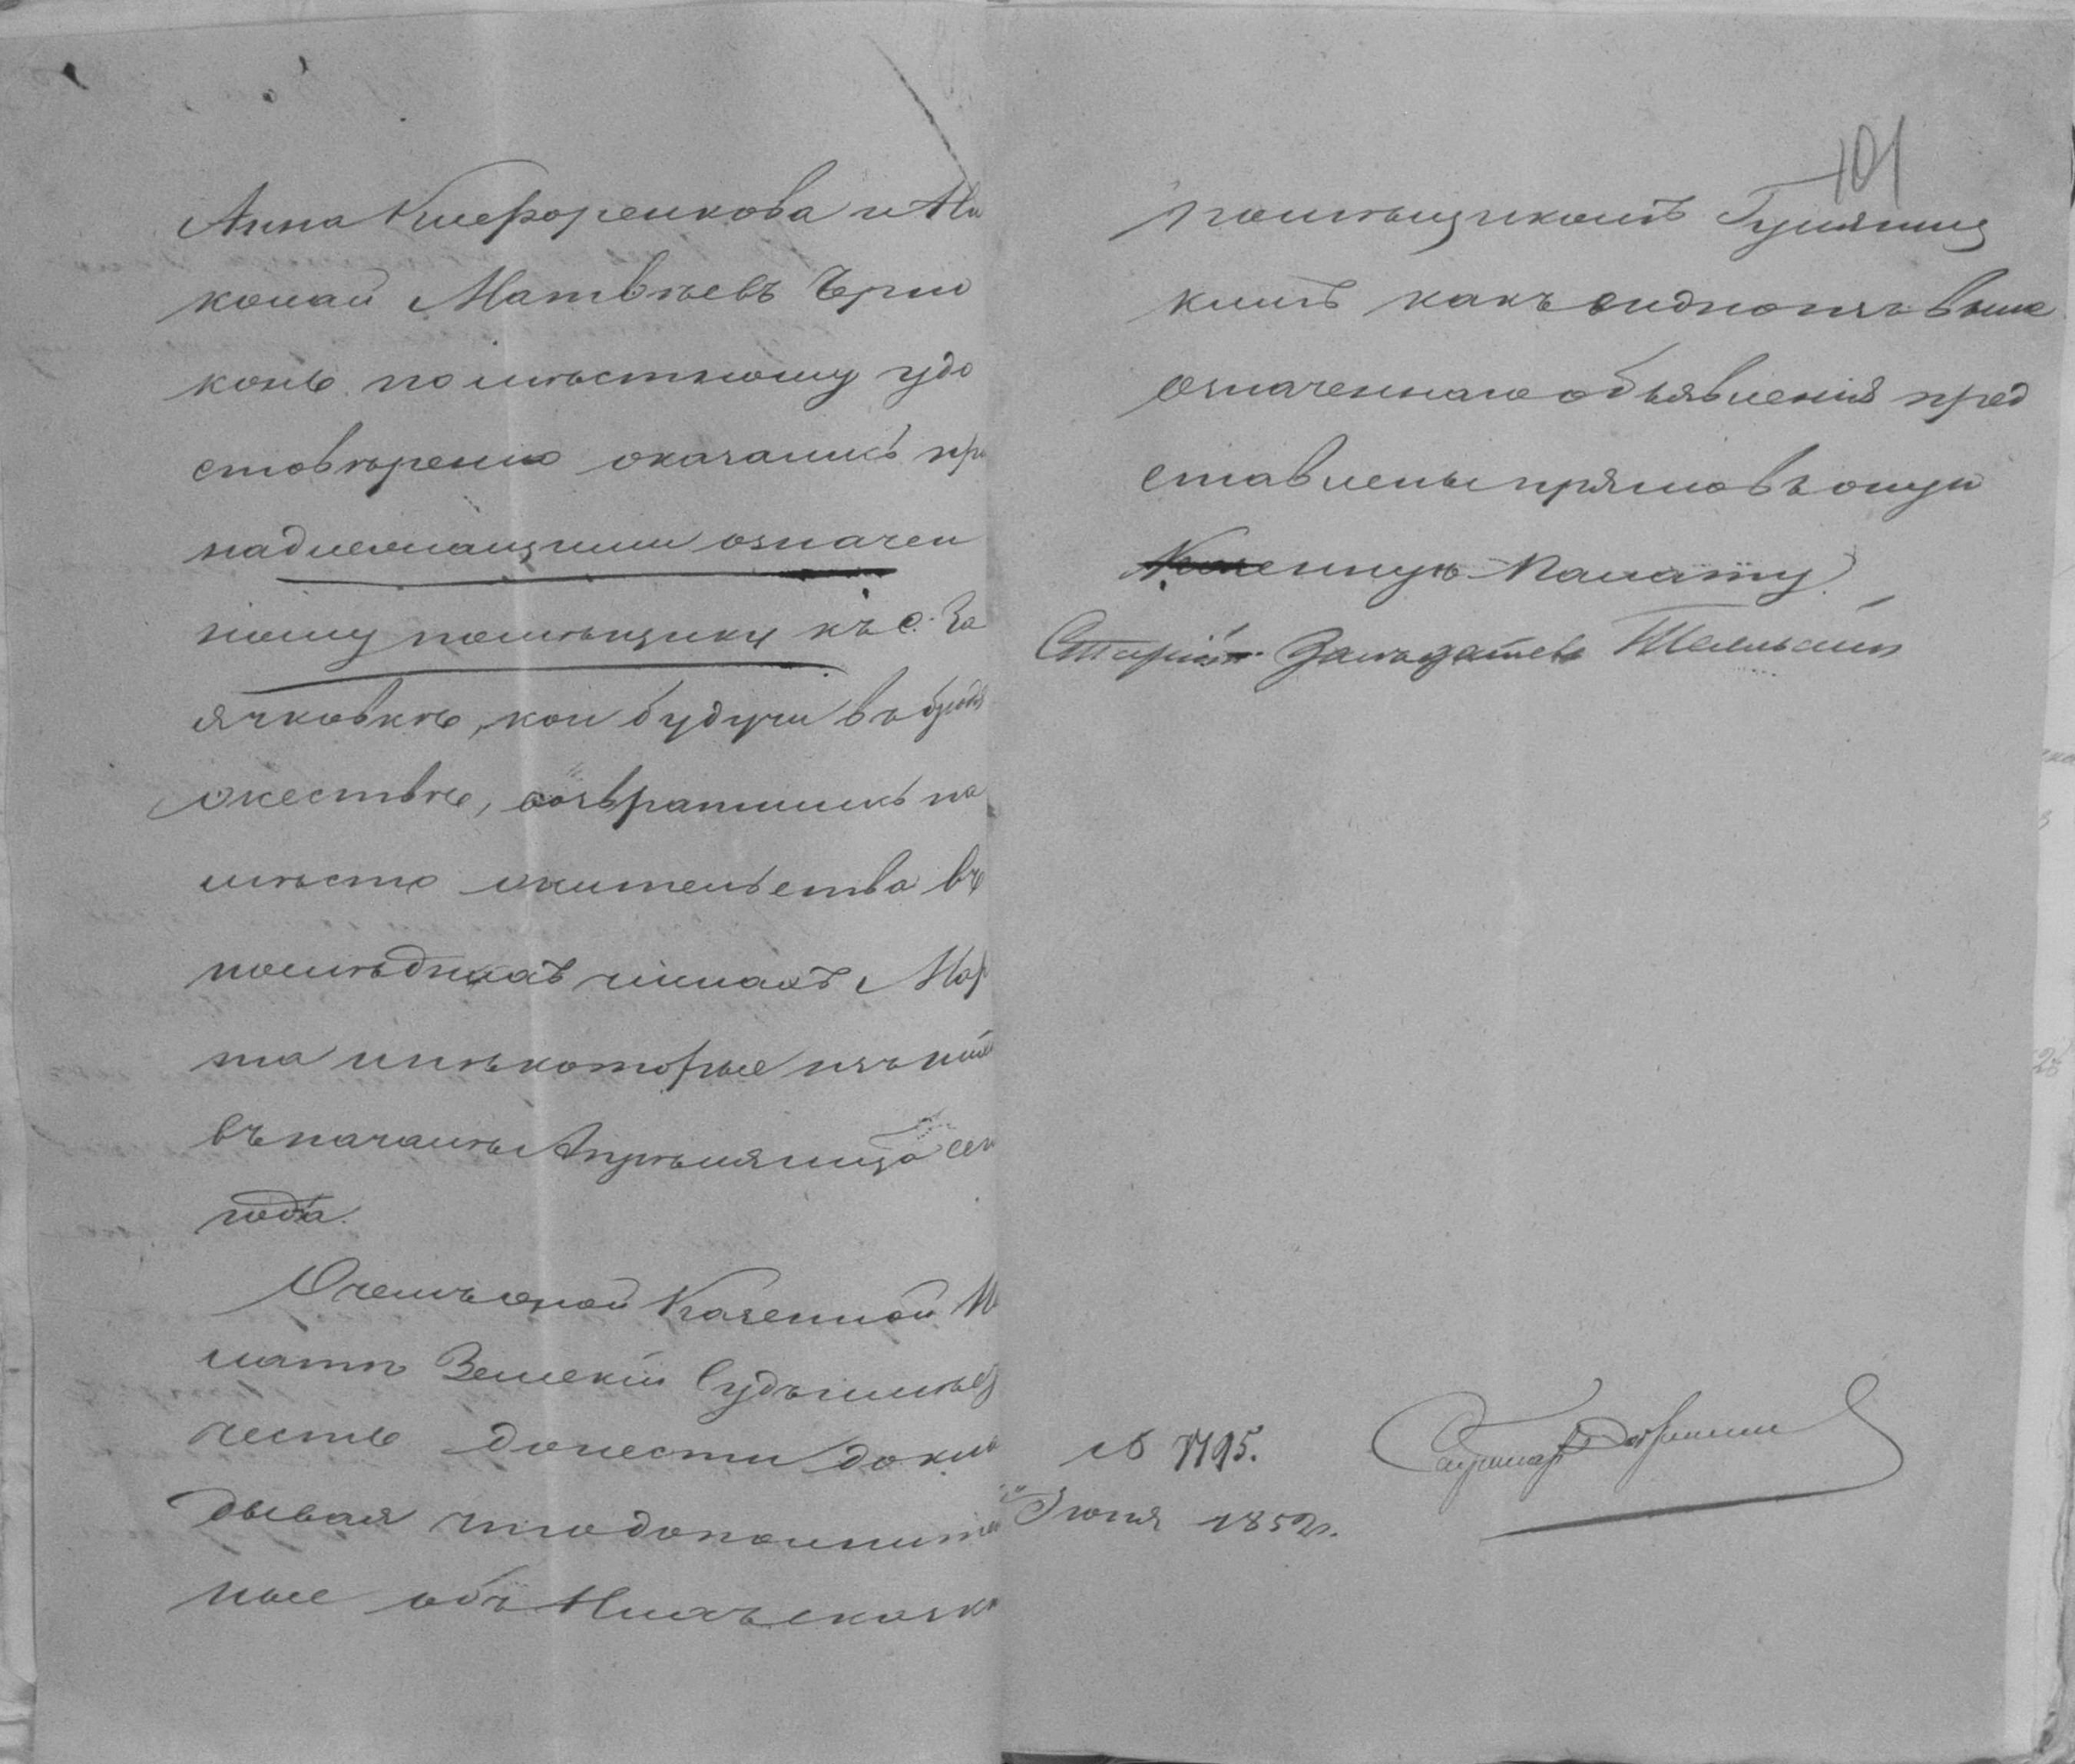 Анна Никифоренкова и Ни
колай Матвѣевъ
конъ по мѣстному удо
стовѣренію оказались при
надлежащими означен
ному помѣщику къ с. За
ячковкѣ, кои будучи въ бродя
жествѣ, возвратились на
мѣсто жительства въ
послѣднихъ числахъ Мар
та и нѣкоторые изъ нихъ
въ началѣ Апрѣля мца сего
года.
О чемъ оной Казенной Па
латѣ Земскій Судъ имѣетъ
честь донести докла
дывая что дополнитель
ные объ нихъ сказки
101
помѣщикомъ
кимъ какъ видно изъ выше
означеннаго объявленія пред
ставлены прямо въ оную
Казенную Палату.
Старшій Засѣдатель
№ 7795.
Іюня 1852 г.